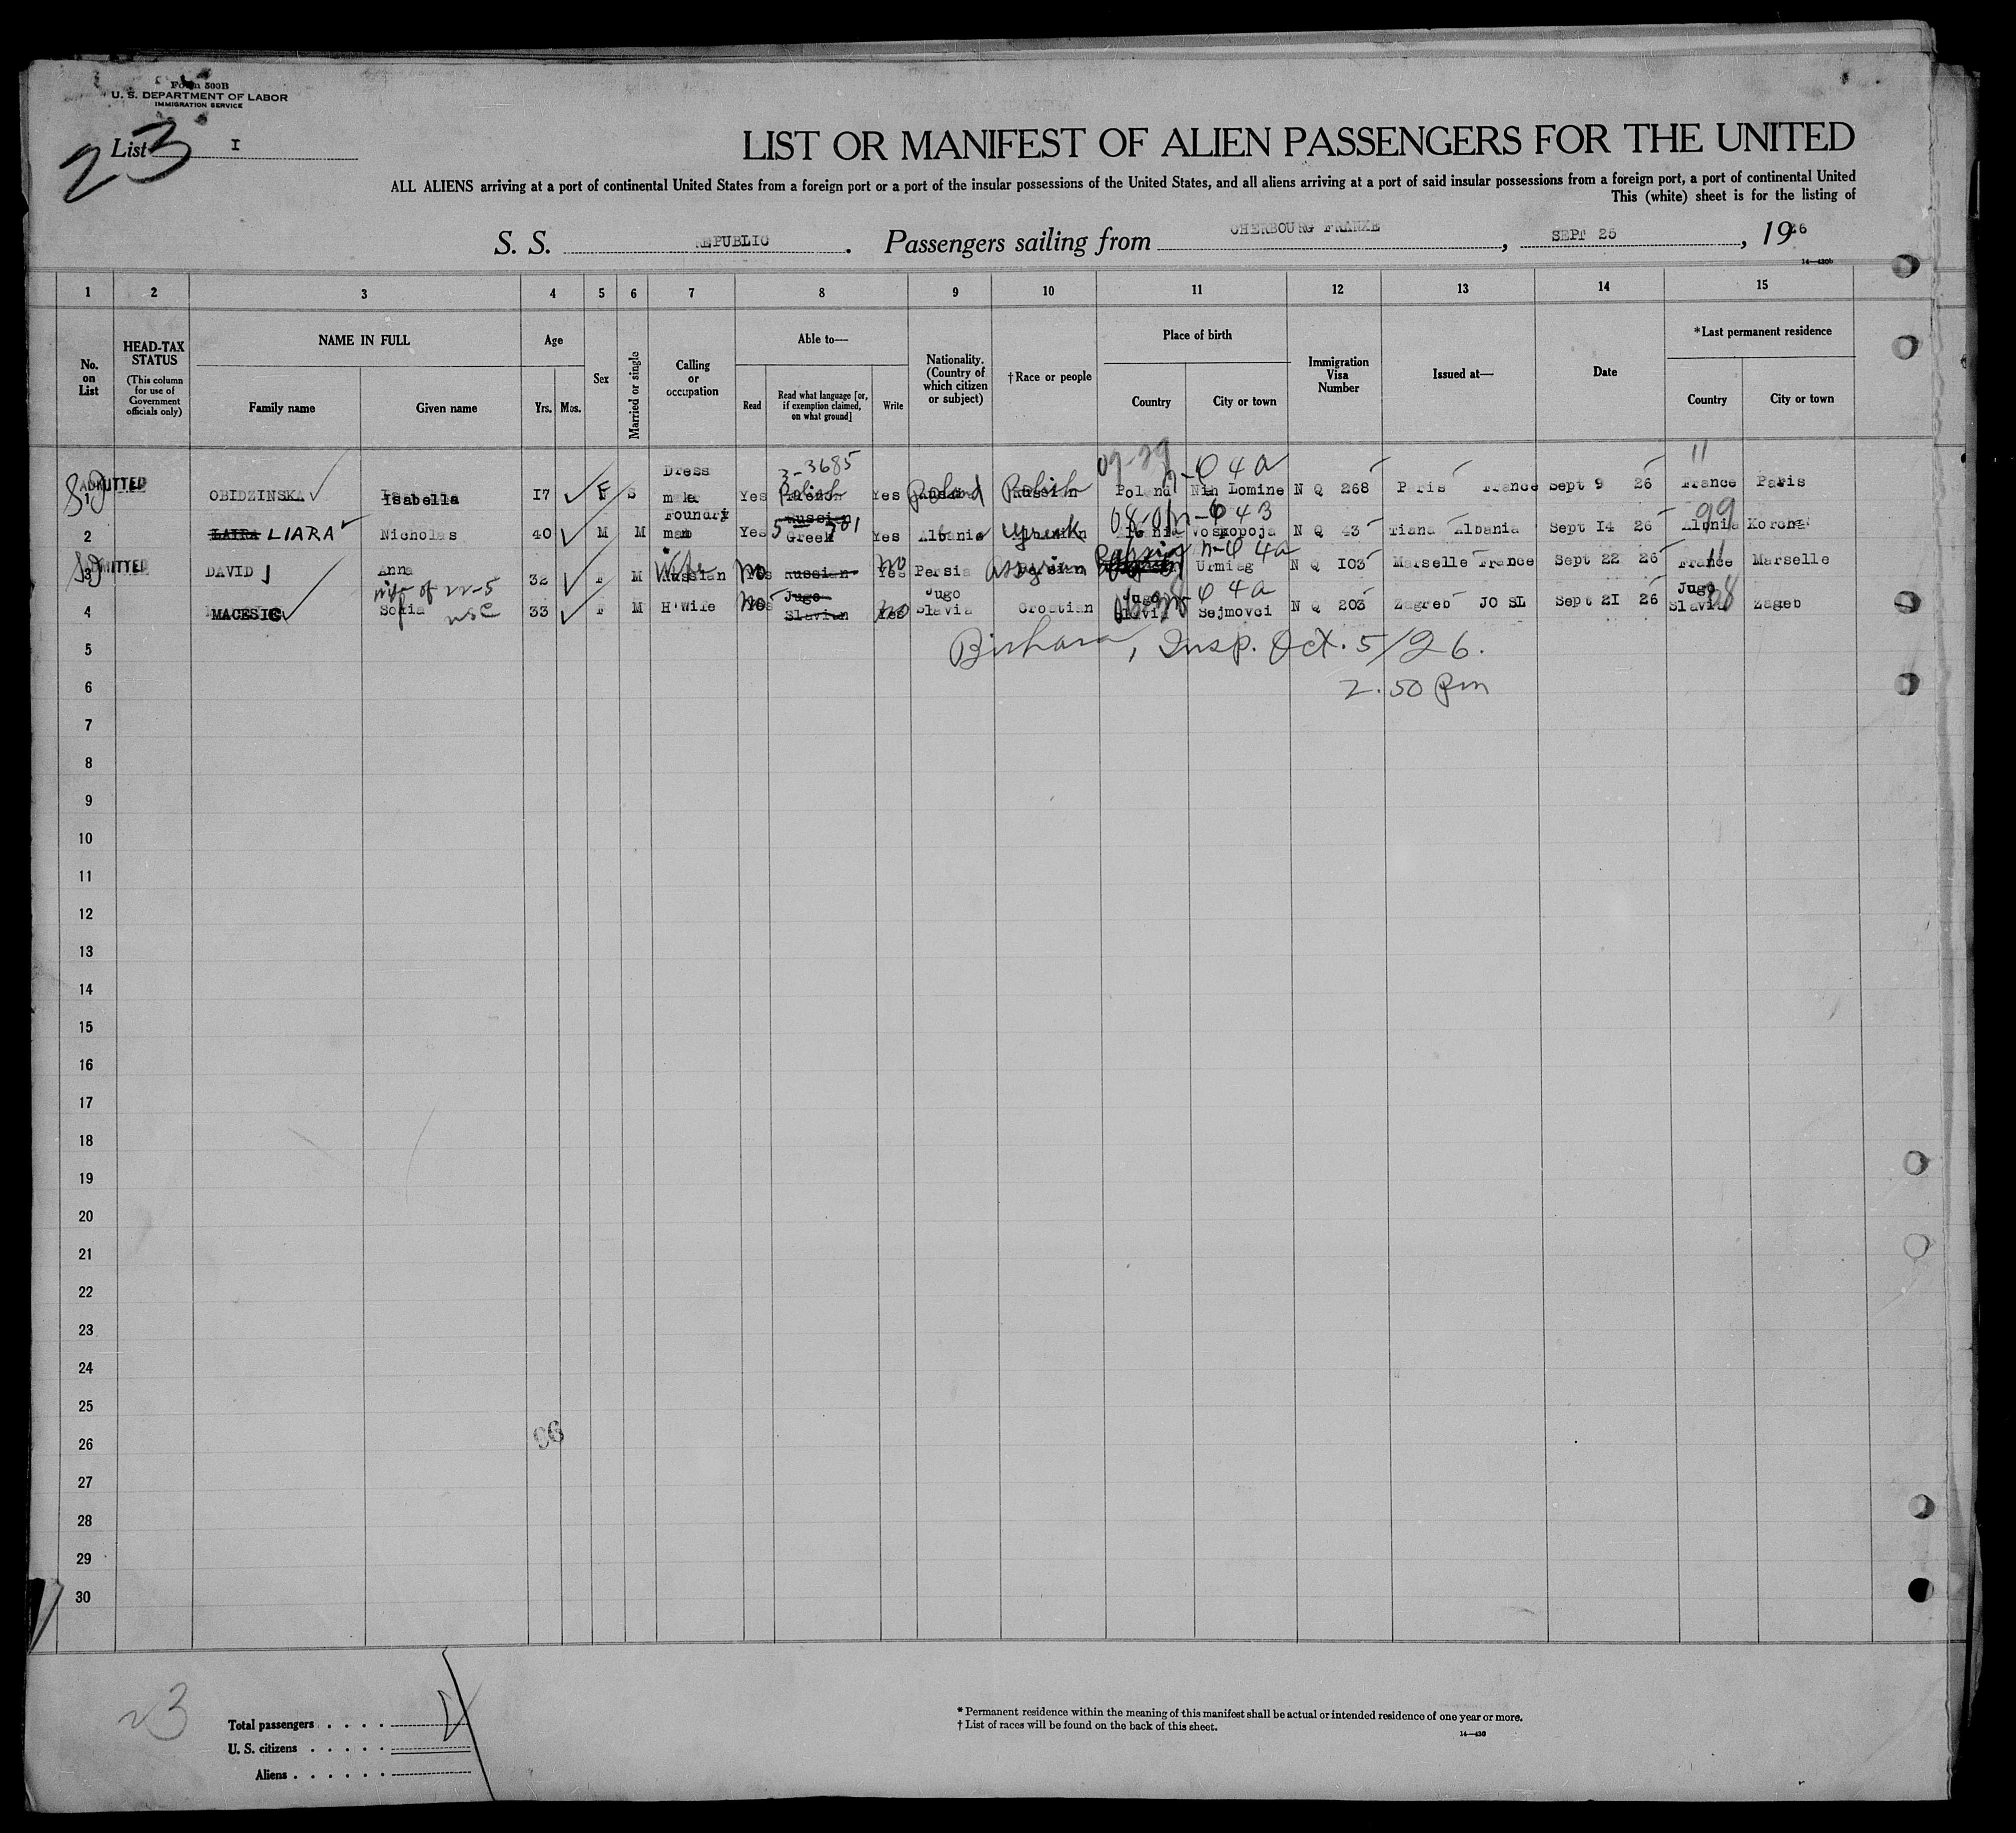 Form 500B
U. S. DEPARTMENT OF LABOR
IMMIGRATION SERVICE
23
List I
LIST OR MANIFEST OF ALIEN PASSENGERS FOR THE UNITED
ALL ALIENS arriving at a port of continental United States from a foreign port or a port of the insular possessions of the United States, and all aliens arriving at a port of said insular possessions from a foreign port, a port of continental United
This (white) sheet is for the listing of
S. S. REPUBLIC. Passengers sailing from CHERBOURG FRANKE, SEPT 25, 1926
14—430b
1 2 3 4 5 6 7 8 9 10 11 12 13 14 15
No. on List
HEAD-TAX STATUS
(This column for use of Government officials only)
NAME IN FULL
Family name
Given name
Age
Yrs. Mos.
Sex
Married or single
Calling or occupation
Able to—
Read
Read what language [or, if exemption claimed, on what ground]
Write
Nationality. (Country of which citizen or subject)
†Race or people
Place of birth
Country
City or town
Immigration Visa Number
Issued at—
Date
*Last permanent residence
Country
City or town
3-3685 09-29 n-4 4a 11
ADMITTED 1 OBIDZINSKA Isabella 17 F S Dress maker Yes Polish Yes Poland Polish Poland Nih Lomine N Q 268 Paris France Sept 9 26 France Paris
08-0 n-4 43 99
2 LAIRA LIARA Nicholas 40 M M Foundry man Yes Russian Greek 5 501 Yes Albania Greek Voskopoja N Q 43 Tiana Albania Sept 14 26 Albnia Korcha
ADMITTED 3 DAVID J Anna 32 F M Wife Russian No Russian No Persia Assyrian Persia n-4 4a Urmiag N Q 105 Marselle France Sept 22 26 France 11 Marselle
wife of
4 MACESIC Sofia 33 F M H'Wife No Jugo Slavien No Jugo Slavia Croatian Jugo Slavia 4 4a Sejmovci N Q 203 Zagreb JO SL Sept 21 26 Jugo Slavia 28 Zageb
USC
5 Bishara, Insp. Oct. 5/26.
6 2.50 pm
7
8
9
10
11
12
13
14
15
16
17
18
19
20
21
22
23
24
25
26
27
28
29
30
23
Total passengers
U. S. citizens
Aliens
* Permanent residence within the meaning of this manifest shall be actual or intended residence of one year or more.
† List of races will be found on the back of this sheet.
14—430